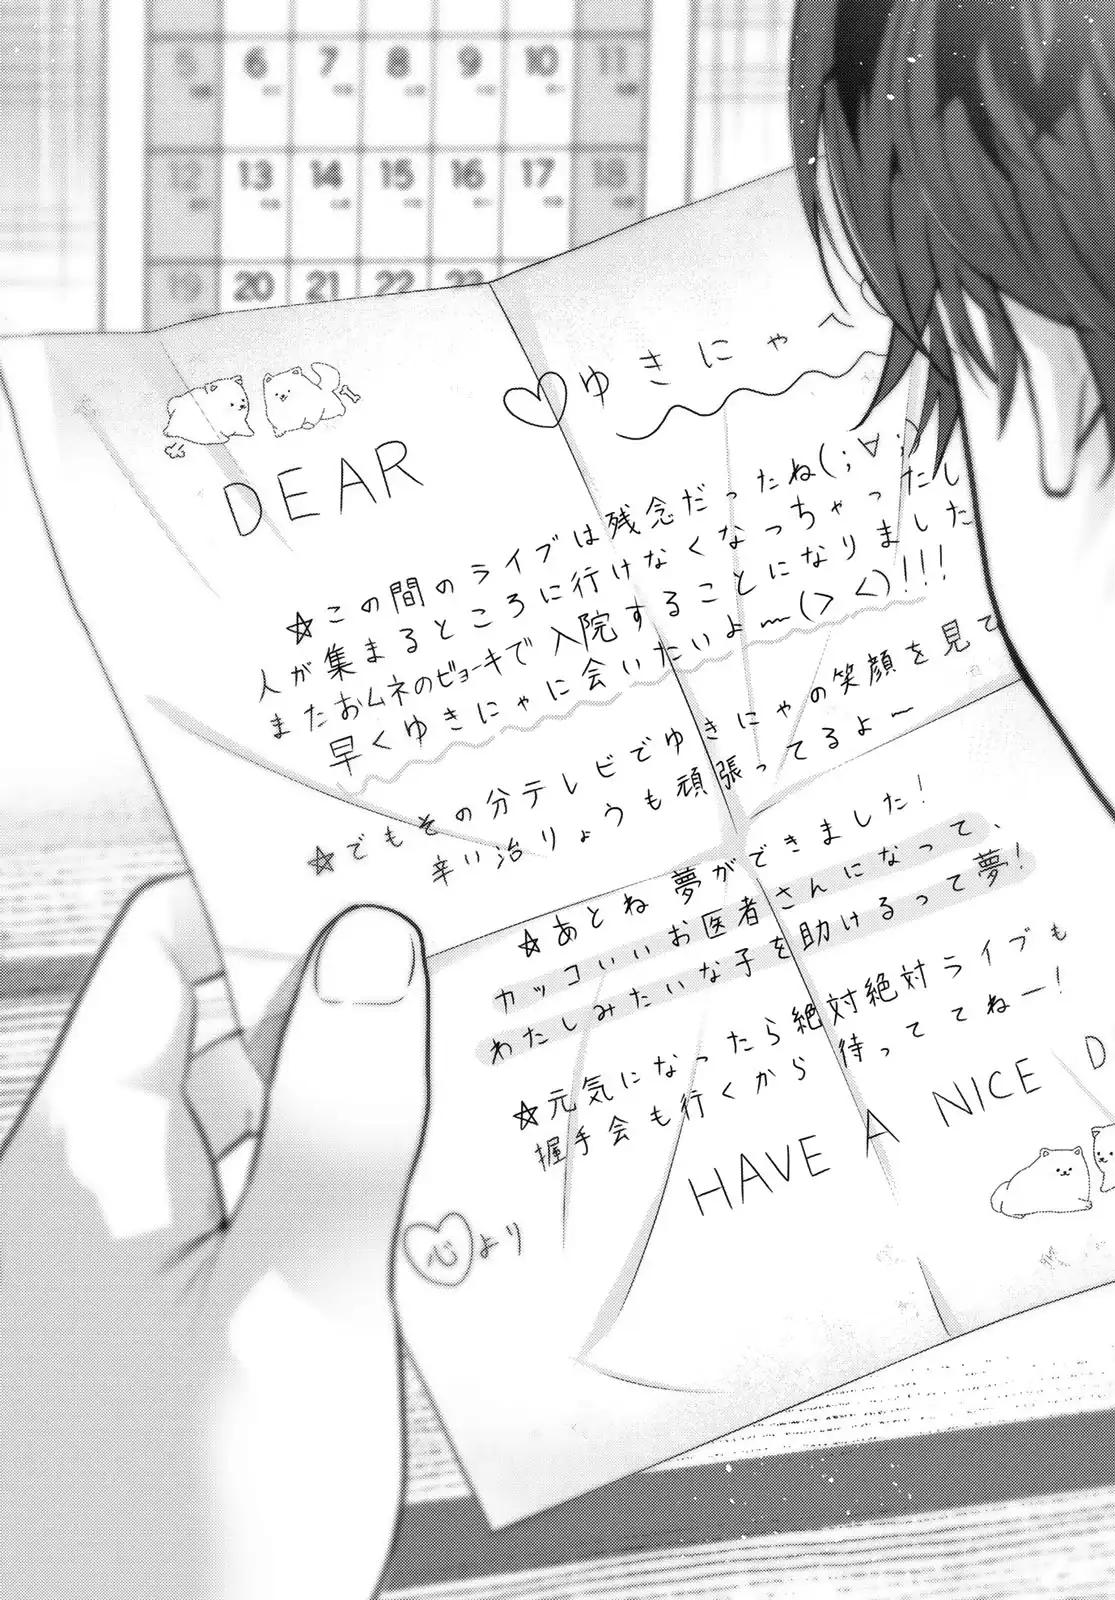 5 6 7 8 9 10 11
12 13 14 15 16 17 18
19 20 21 22 23
DEAR
♡ゆきにゃへ
☆この間のライブは残念だったね(;∀;)
人が集まるところに行けなくなっちゃったし
またおムネのビョーキで入院することになりました
早くゆきにゃに会いたいよ〜(><)!!!
☆でもその分テレビでゆきにゃの笑顔を見て
辛い治りょうも頑張ってるよ〜
☆あとね夢ができました!
カッコいいお医者さんになって、
わたしみたいな子を助けるって夢!
☆元気になったら絶対絶対ライブも
握手会も行くから待っててねー!
HAVE A NICE D
心より